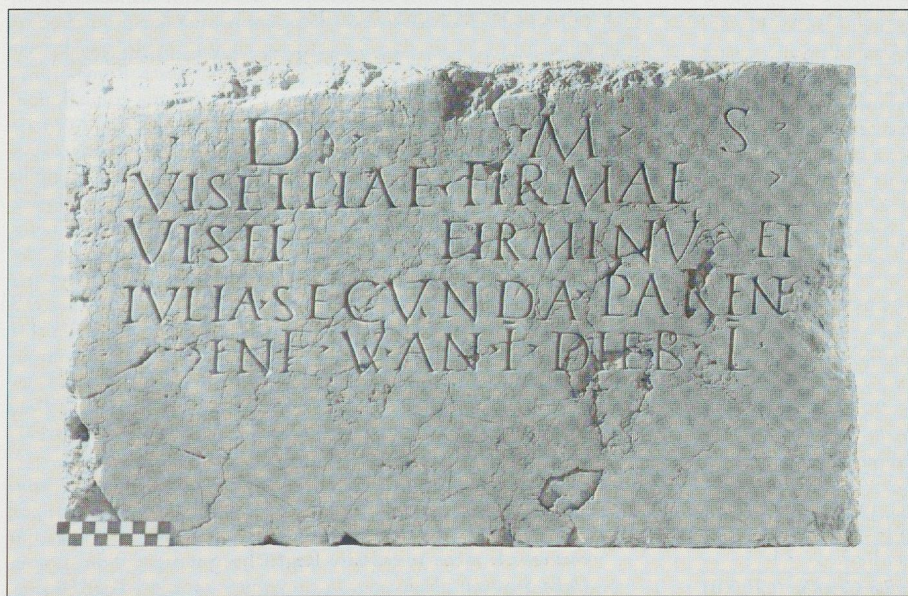 D · M · S ·
VISELLIAE · FIRMAE
VISEL · FIRMINV ET
IVLIA · SECVNDA · PAREN
INF · VV · AN · Ī · DIEB · L̄ ·